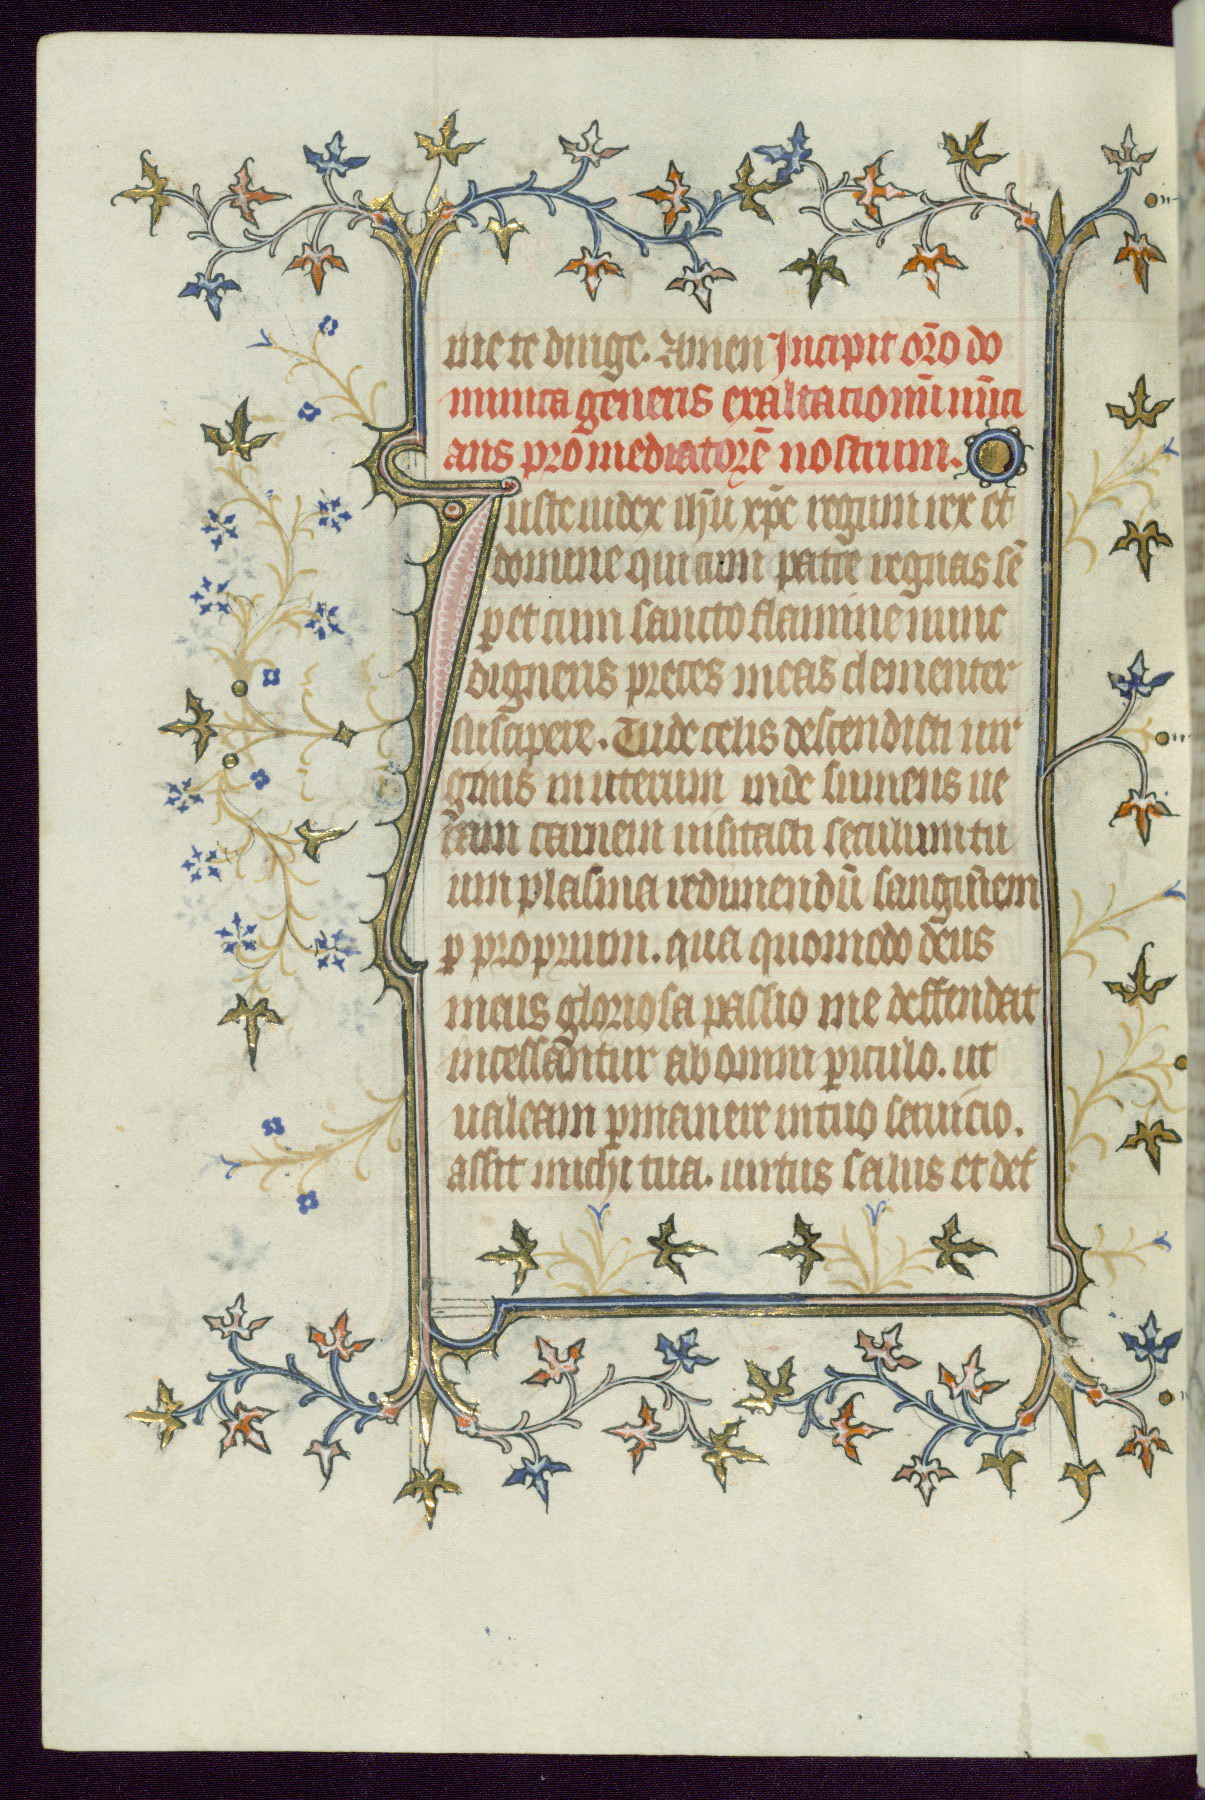 me te dirige. Amen Incipit or̃o do
minica generis exaltacionũ nũci
ans pro mediatorẽ nostrum.
Iuste iudex ihũ xp̃e regum rex et
domine qui cum patre regnas sẽ
per et cum sancto flamine nunc
digneris preces meas clementer
suscipere. Tu de celis descendisti uir
ginis in uterum inde sumens ue
ram carnem uisitasti seculum tu
um plasma redimendũ sanguinem
p proprium. qua quomodo deus
meus gloriosa passio me deffendat
incessantur ab omni piculo. ut
ualeam pmanere in tuo seruicio.
assit michi tua. uirtus salus et def